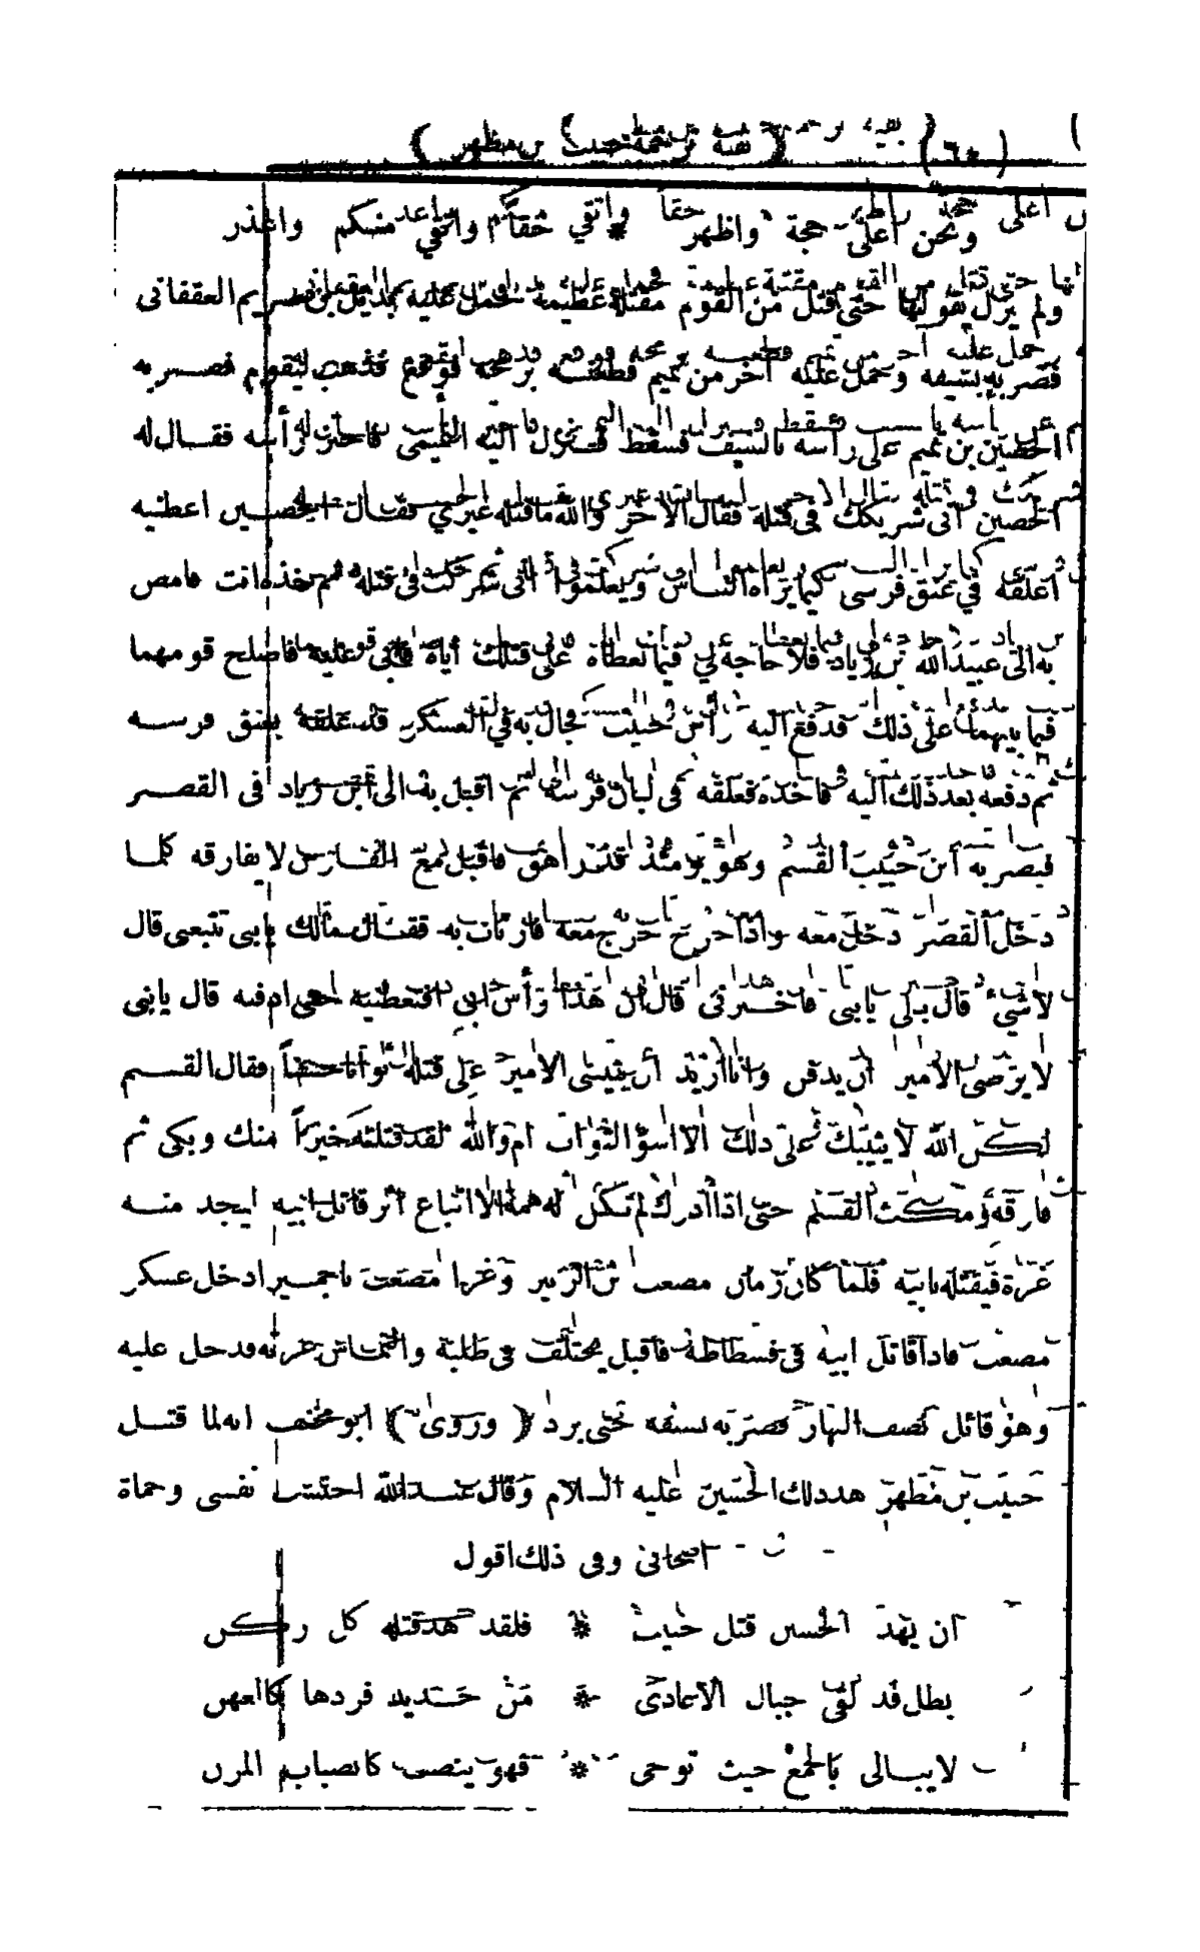 ( ٦٥ ) ( بقية ترجمة حبيب بن مظهر )
ونحن أعلى حجة وأظهر حقاً واتقي منكم واعذر
ولم يزل يقولها حتى قتل من القوم مقتلة عظيمة فحمل عليه بديل بن صريم العقفاني
فضربه بسيفه وحمل عليه آخر من تميم فطعنه برمحه فوقع فذهب ليقوم فضربه
الحصين بن تميم على رأسه بالسيف فسقط فنزل اليه التميمي فاحتز رأسه فقال له
الحصين اني شريكك في قتله فقال الآخر والله ما قتله غيري فقال الحصين اعطنيه
اعلقه في عنق فرسي كيما يراه الناس ويعلموا اني شركت في قتله ثم خذه انت فامض
به الى عبيد الله بن زياد فلا حاجة لي فيما تعطاه على قتلك اياه فابى عليه فاصلح قومهما
فيما بينهما على ذلك فدفع اليه رأس حبيب فجال به في العسكر قد علقه بعنق فرسه
ثم دفعه بعد ذلك اليه فاخذه فعلقه في لبان فرسه ثم اقبل به الى ابن زياد في القصر
فبصر به ابن حبيب القسم وهو يومئذ قد راهق فاقبل مع الفارس لا يفارقه كلما
دخل القصر دخل معه واذا خرج خرج معه فارتاب به فقال مالك يا بني تتبعني قال
لا شيء قال بلى يا بني فاخبرني قال ان هذا رأس ابي افتعطنيه حتى ادفنه قال يا بني
لا يرضى الامير ان يدفن وانا اريد ان يثيبني الامير على قتله ثواباً حسناً فقال القسم
لكن الله لا يثيبك على ذلك الا اسوأ الثواب ام والله لقد قتلته خيراً منك وبكى ثم
فارقه ومكث القسم حتى اذا ادرك لم تكن له همة الا اتباع اثر قاتل ابيه ليجد منه
غرة فيقتله بابيه فلما كان زمان مصعب بن الزبير وغزا مصعب باجميرا دخل عسكر
مصعب فاذا قاتل ابيه في فسطاطه فاقبل يختلف في طلبه والتماس غرته فدخل عليه
وهو قائل نصف النهار فضربه بسيفه حتى برد ( وروى ) ابو مخنف انه لما قتل
حبيب بن مظهر هد ذلك الحسين عليه السلام وقال عند الله احتسب نفسي وحماة
اصحابي وفي ذلك اقول
ان يهد الحسين قتل حبيب * فلقد هد قتله كل ركن
بطل قد لقى جبال الاعادي * من حديد فردها كالعهن
لا يبالي بالجمع حيث توخى * فهو ينصب كانصباب المزن